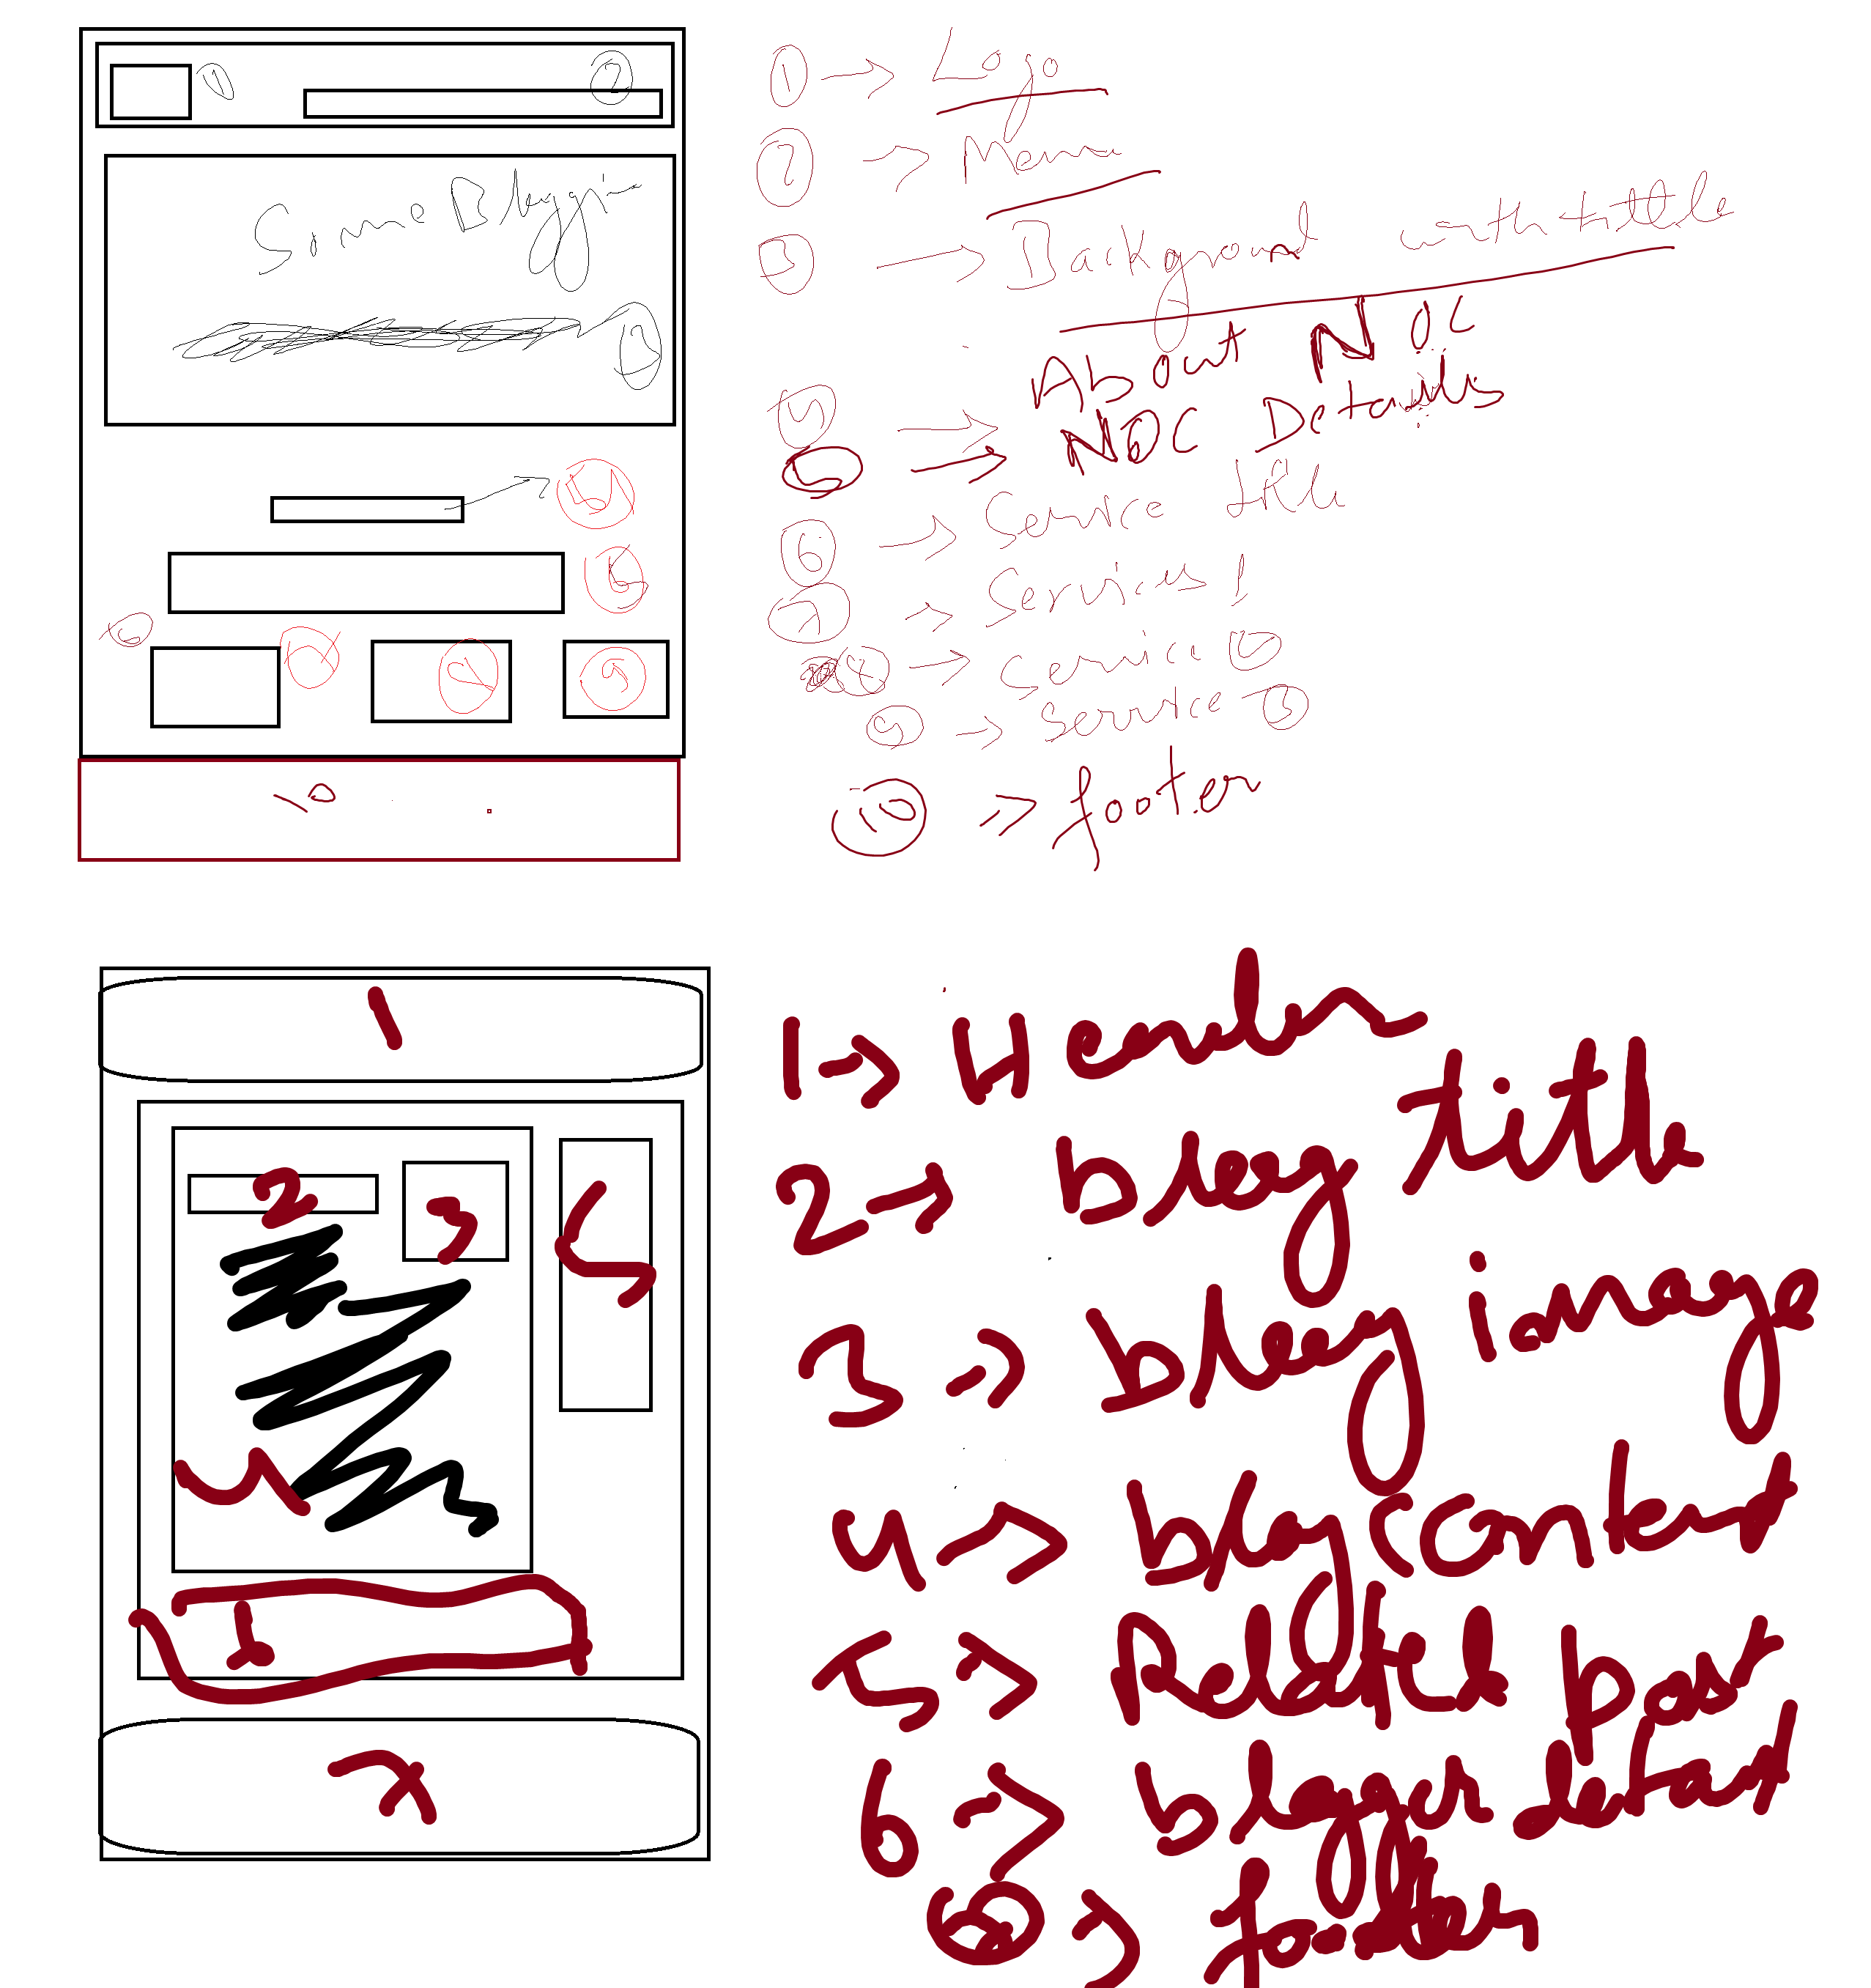 1 2
Simple Blogging
3
4
5
6 7 8 9
10
1 → Logo
2 → Menu
3 → Background with tittle
4 → About NOC
5 → NOC Details
6 → Service title
7 → Services 1
8 → Service 2
9 → Service 3
10 → footer
1
2 3 5
4
7
1 → Header
2 → blog title
3 → blog image
4 → blog content
5 → Related post
6 → blogger detail
→ footer